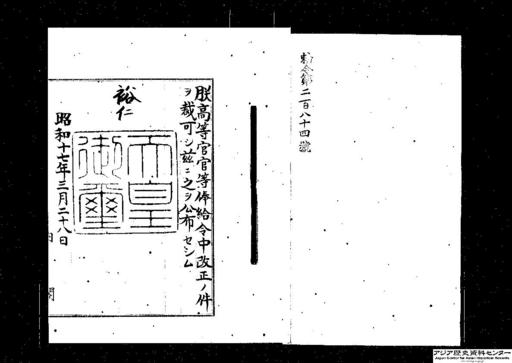 勅令第二百八十四號
朕高等官官等俸給令中改正ノ件
ヲ裁可シ茲ニ之ヲ公布セシム
裕仁
天皇御璽
昭和十七年三月二十八日
アジア歴史資料センター
Japan Center for Asian Historical Records